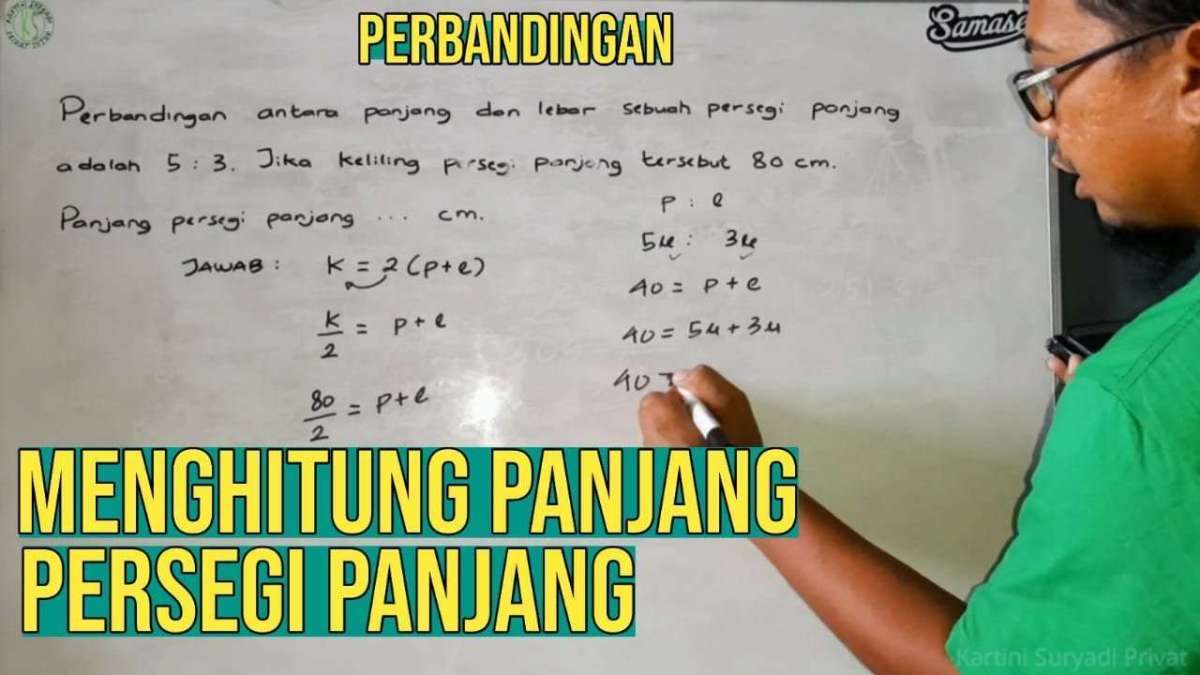 PERBANDINGAN
Samaso
Perbandingan antara panjang dan lebar sebuah persegi panjang
adalah 5 : 3. Jika keliling persegi panjang tersebut 80 cm.
Panjang persegi panjang ... cm.
JAWAB : K = 2 (p+l)
K/2 = p+l
80/2 = p+l
p : l
5u : 3u
40 = p + l
40 = 5u + 3u
40 =
MENGHITUNG PANJANG
PERSEGI PANJANG
Kartini Suryadi Privat